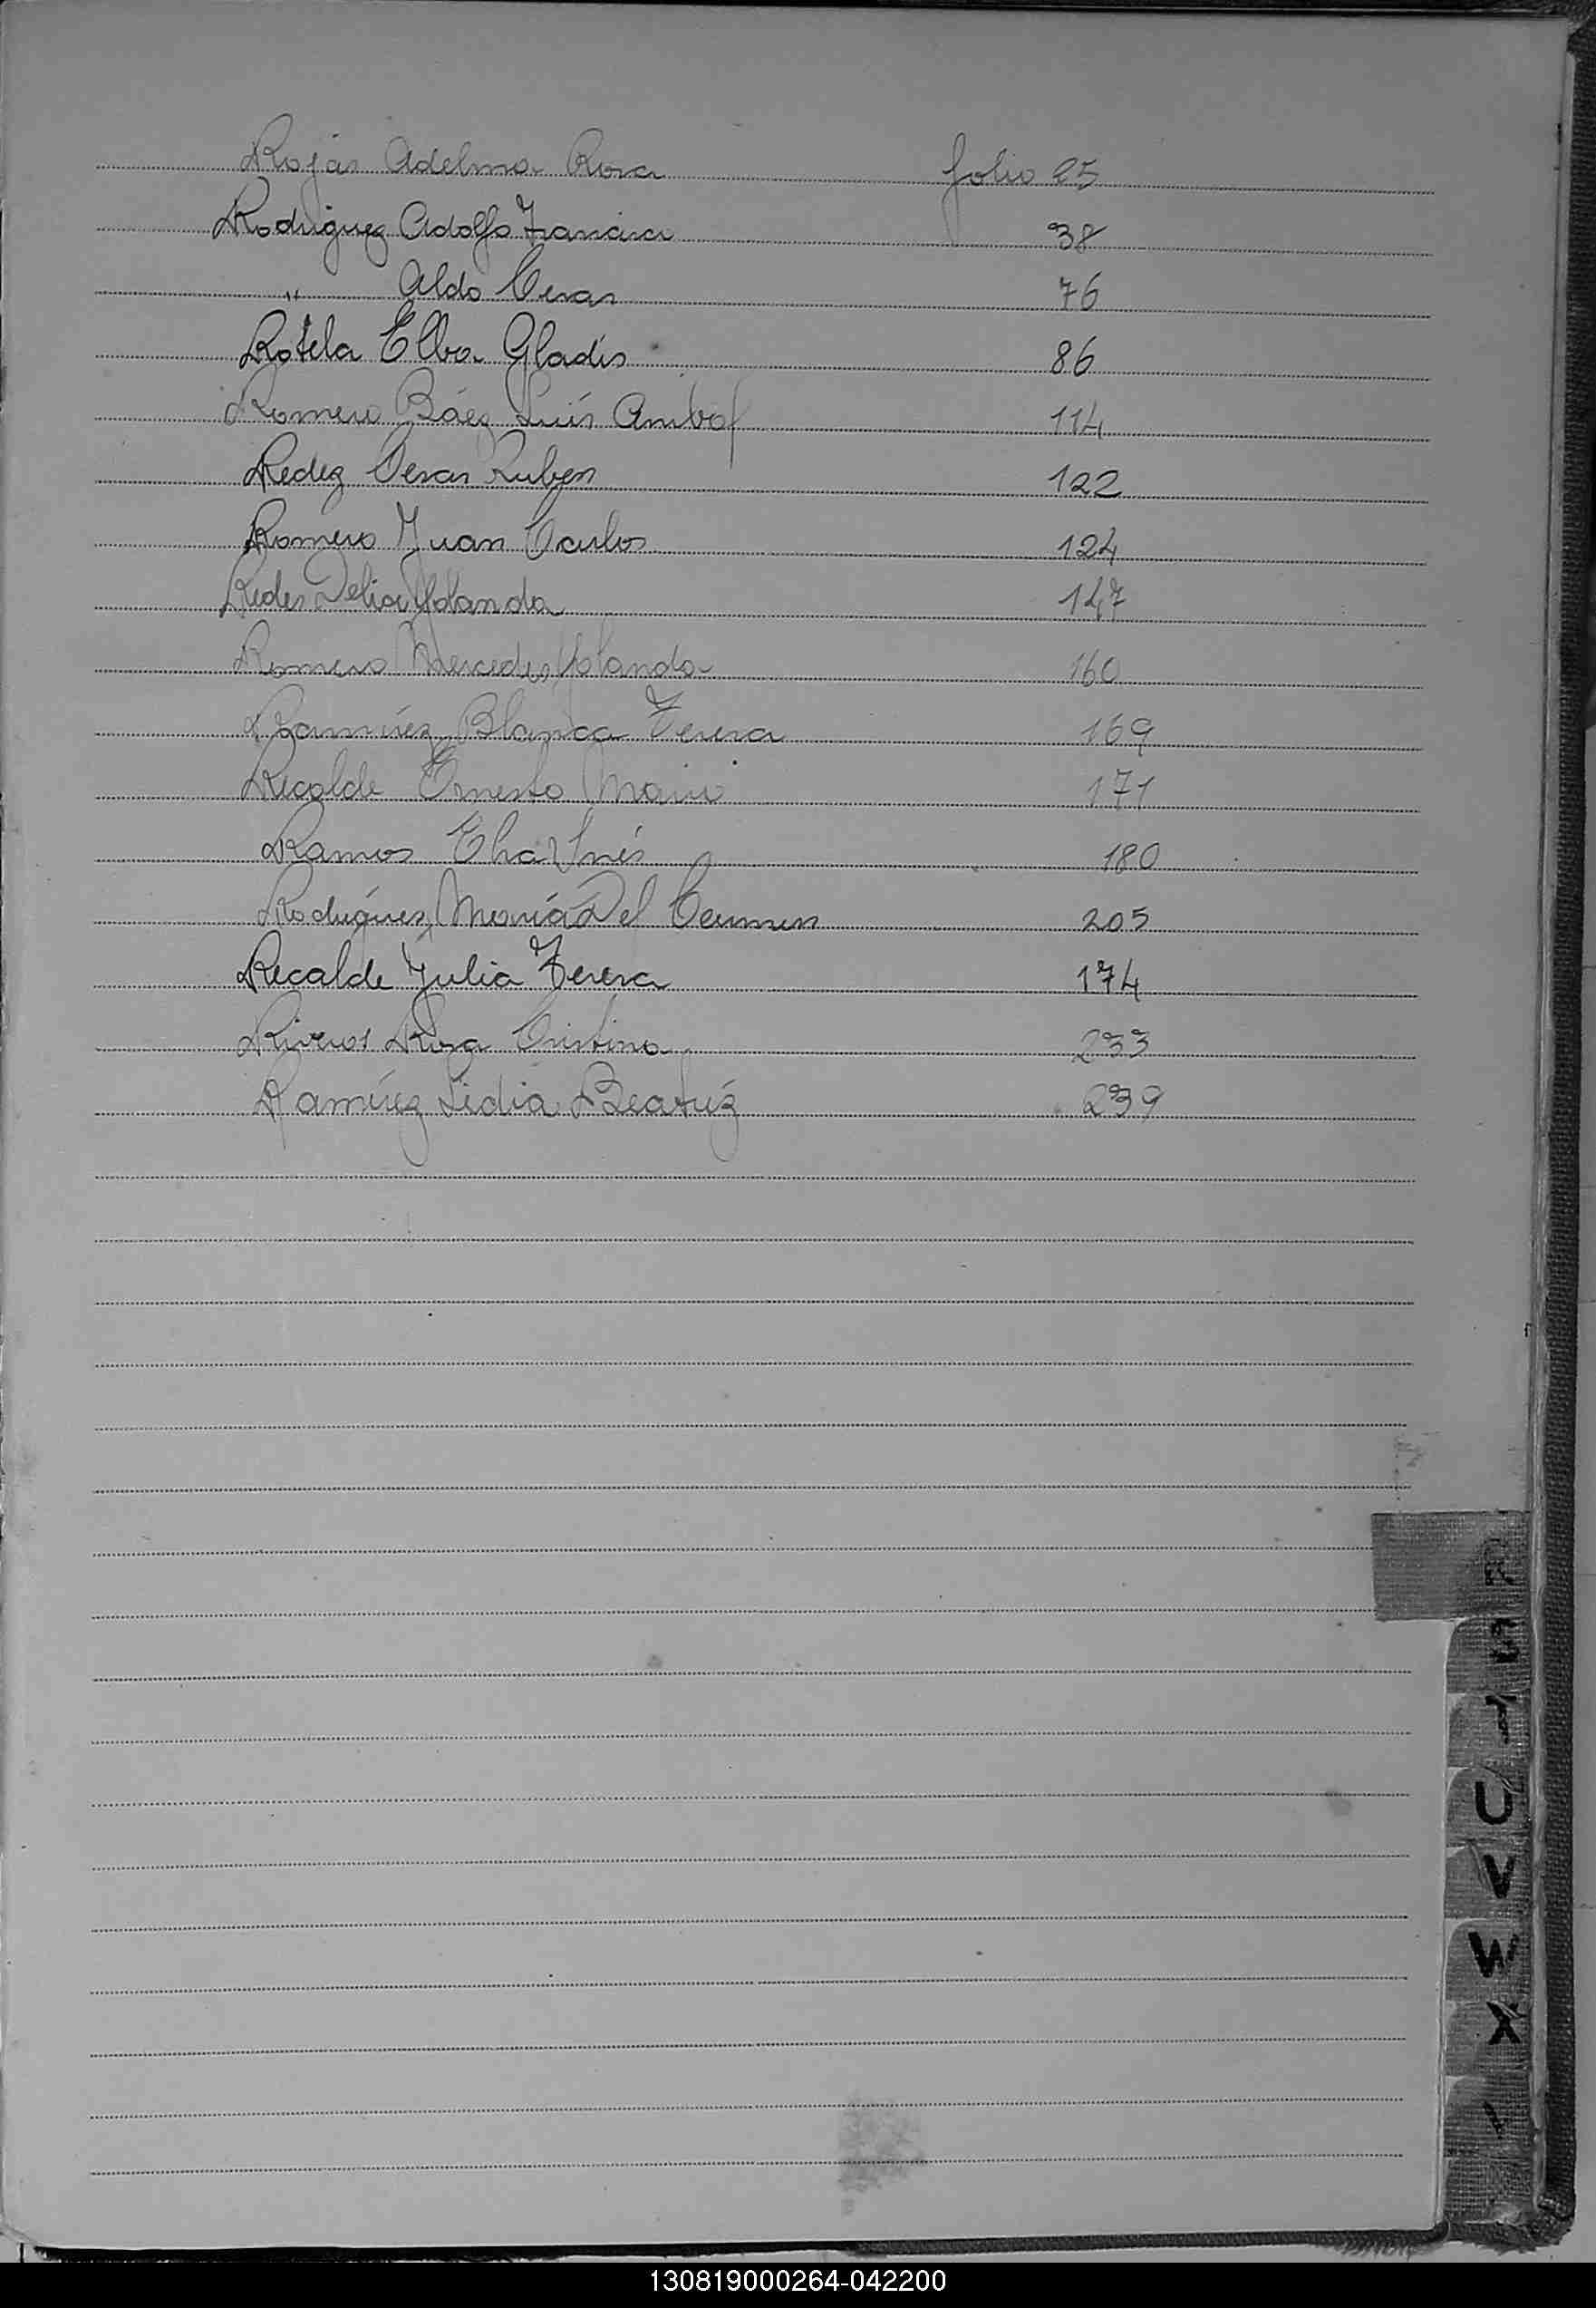 Rojas Adelma Rosa folio 25
Rodriguez Adolfo Francisco 38
" Aldo Cesar 76
Rotela Elba Gladis 86
Romero Báez Luis Anibal 114
Redez Cesar Ruben 122
Romero Juan Carlos 124
Redes Delia Yolanda 147
Romero Mercedes Yolanda 160
Ramírez Blanca Teresa 169
Recalde Ernesto Mario 171
Ramos Elva Inés 180
Rodrígues María Del Carmen 205
Recalde Julia Teresa 174
Riveros Rosa Cristina 233
Ramírez Lidia Beatríz 239
R
S
T
U
V
W
X
130819000264-042200